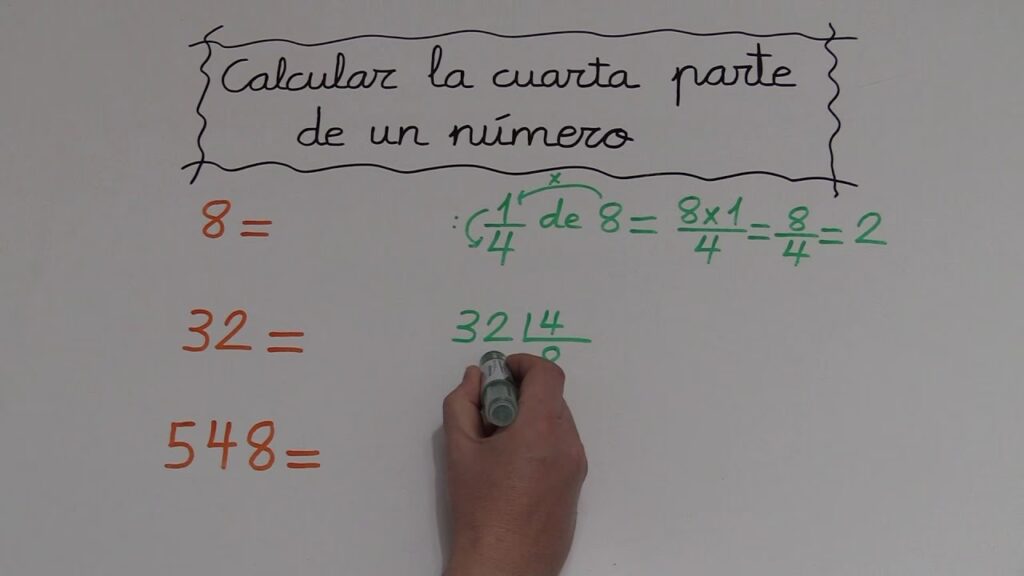 Calcular la cuarta parte
de un número
8 =
x
: 1/4 de 8 = 8x1/4 = 8/4 = 2
32 =
32 4
8
548 =